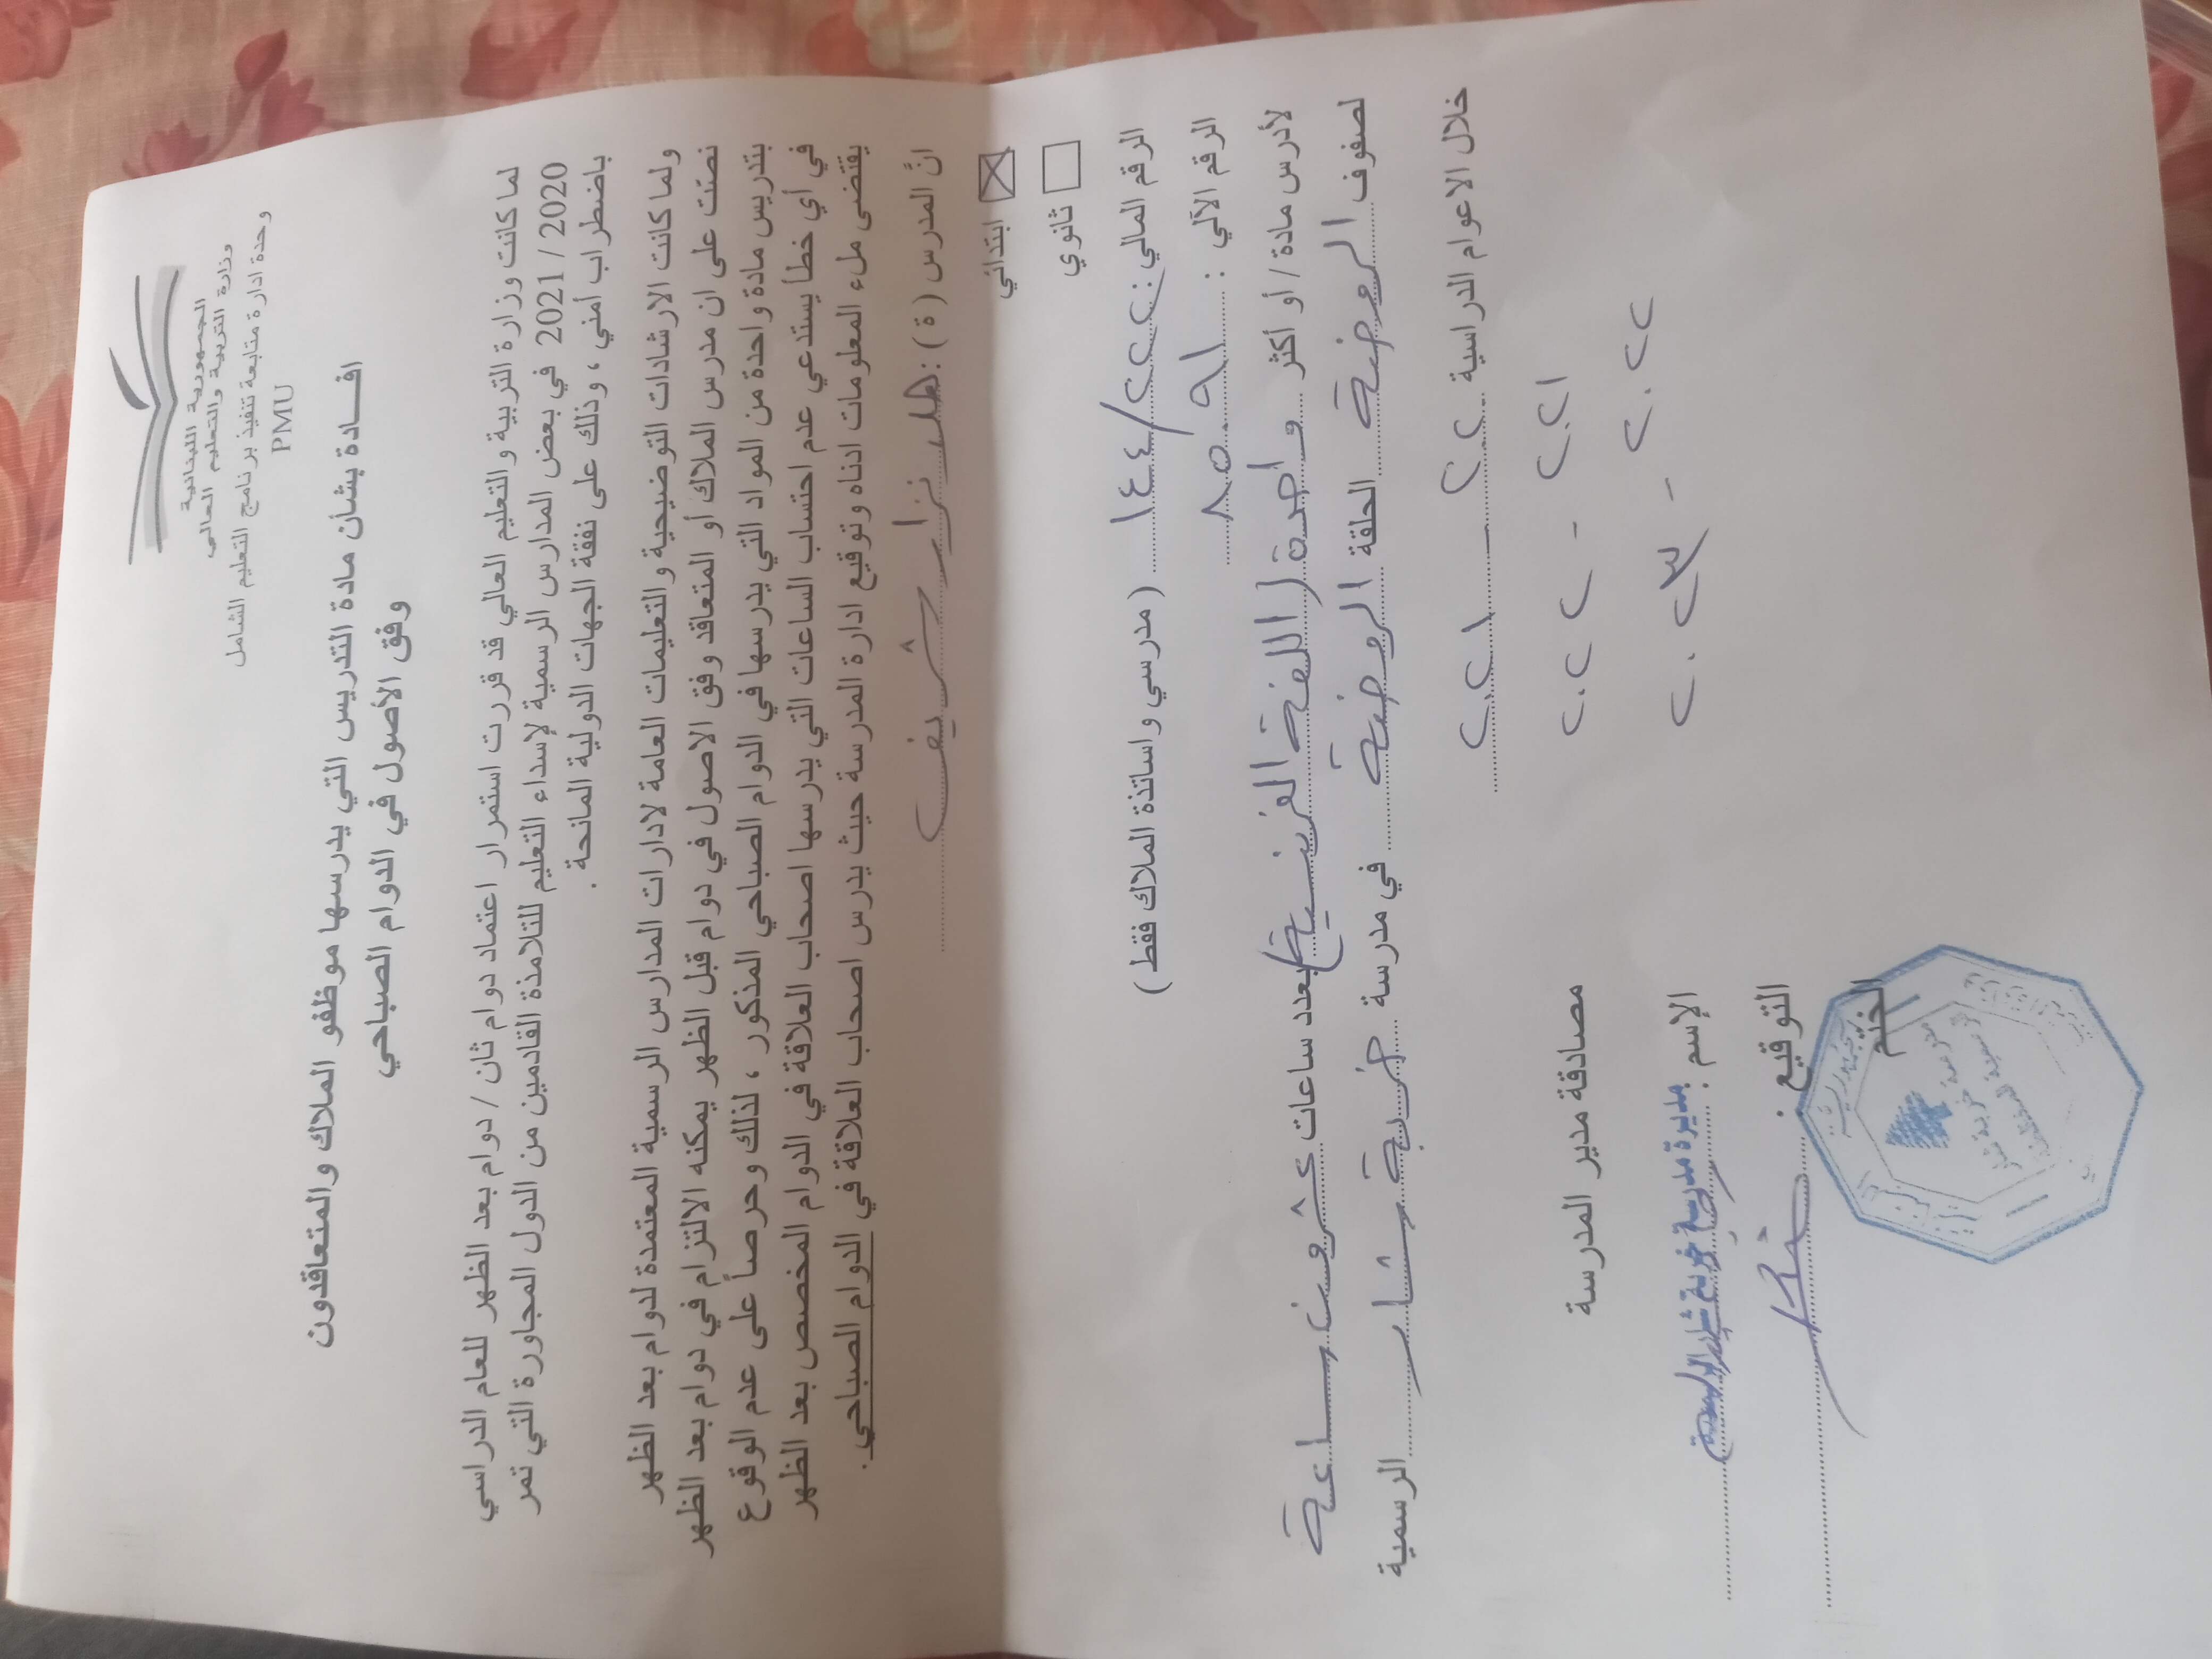 الجمهورية اللبنانية
وزارة التربية والتعليم العالي
وحدة ادارة متابعة تنفيذ برنامج التعليم الشامل
PMU
افـــادة بشأن مادة التدريس التي يدرسها موظفو الملاك والمتعاقدون
وفق الأصول في الدوام الصباحي
لما كانت وزارة التربية والتعليم العالي قد قررت استمرار اعتماد دوام ثان / دوام بعد الظهر للعام الدراسي
2021 / 2020 في بعض المدارس الرسمية لإسداء التعليم للتلامذة القادمين من الدول المجاورة التي تمر
باضطراب أمني ، وذلك على نفقة الجهات الدولية المانحة .
ولما كانت الارشادات التوضيحية والتعليمات العامة لادارات المدارس الرسمية المعتمدة لدوام بعد الظهر
نصت على ان مدرس الملاك أو المتعاقد وفق الاصول في دوام قبل الظهر يمكنه الالتزام في دوام بعد الظهر
بتدريس مادة واحدة من المواد التي يدرسها في الدوام الصباحي المذكور ، لذلك وحرصاً على عدم الوقوع
في أي خطأ يستدعي عدم احتساب الساعات التي يدرسها اصحاب العلاقة في الدوام المخصص بعد الظهر
يقتضى ملء المعلومات ادناه وتوقيع ادارة المدرسة حيث يدرس اصحاب العلاقة في الدوام الصباحي .
انَّ المدرس ( ة ) : هلا نزار شريف
ابتدائي ☒
ثانوي ☐
الرقم المالي : ١٤٤/٢٢٢ ( مدرسي واساتذة الملاك فقط )
الرقم الآلي : ٨٥٠٩١
لأدرس مادة / أو أكثر واحدة (اللغة الفرنسية) بعدد ساعات عشرون ساعة
لصفوف الروضة الحلقة الروضة في مدرسة خربة شار الرسمية
خلال الاعوام الدراسية ٢٠٢٠ - ٢٠٢١
٢٠٢١ - ٢٠٢٢
٢٠٢٢ - ٢٠٢٣
مصادقة مدير المدرسة
الإسم : مديرة مدرسة خربة شار الرسمية
التوقيع :
الختم